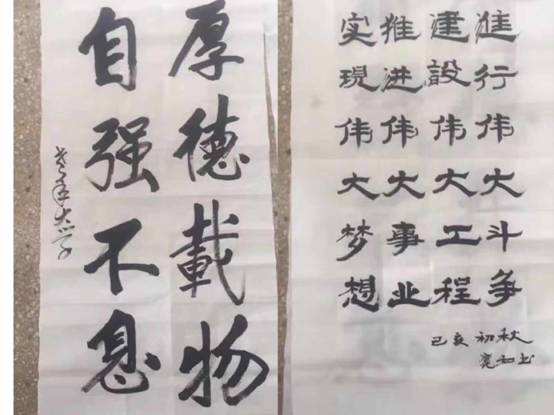 厚德載物
自强不息
老年大学
進行伟大斗争
建設伟大工程
推进伟大事业
实現伟大梦想
己亥初秋
宪和书